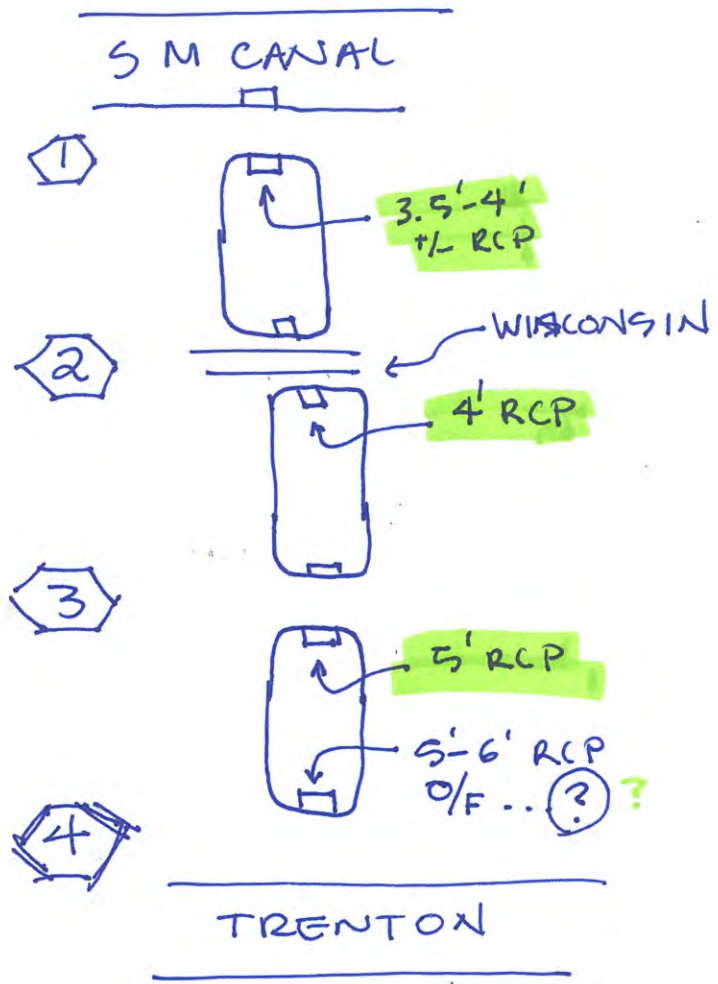 S M CANAL
1
3.5'-4'
+/- RCP
WISCONSIN
2
4' RCP
3
5' RCP
5'-6' RCP
O/F .. ? ?
4
TRENTON